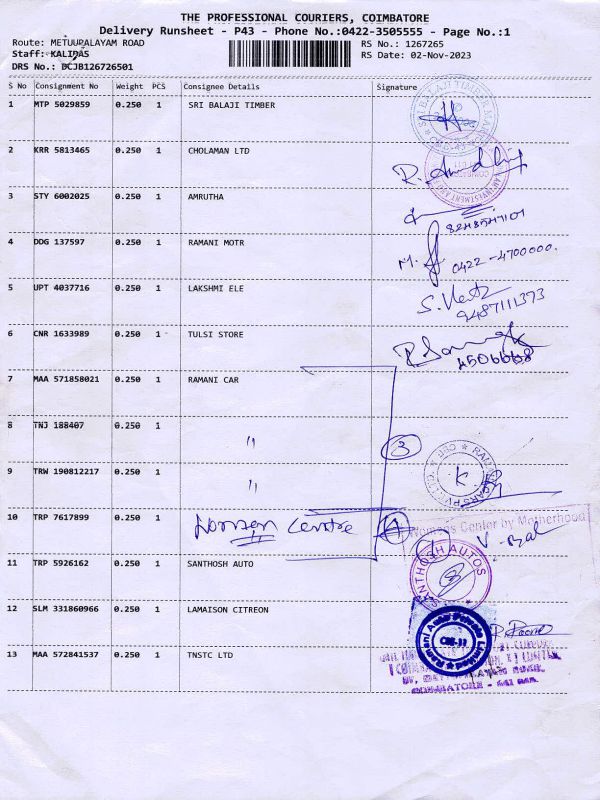 THE PROFESSIONAL COURIERS, COIMBATORE
Delivery Runsheet - P43 - Phone No.:0422-3505555 - Page No.:1
Route: METUUPALAYAM ROAD
RS No.: 1267265
Staff: KALIDAS
RS Date: 02-Nov-2023
DRS No.: DCJB126726501
S No Consignment No Weight PCS Consignee Details Signature
1 MTP 5029859 0.250 1 SRI BALAJI TIMBER
2 KRR 5813465 0.250 1 CHOLAMAN LTD
3 STY 6002025 0.250 1 AMRUTHA
4 DDG 137597 0.250 1 RAMANI MOTR
0422-4700000.
5 UPT 4037716 0.250 1 LAKSHMI ELE
9487111373
6 CNR 1633989 0.250 1 TULSI STORE
7 MAA 571858021 0.250 1 RAMANI CAR
8 TNJ 188407 0.250 1 "
3
9 TRW 190812217 0.250 1 "
10 TRP 7617899 0.250 1 Women Centre
Womens Center by Motherhood
11 TRP 5926162 0.250 1 SANTHOSH AUTO
SANTHOSH AUTOS
12 SLM 331860966 0.250 1 LAMAISON CITREON
13 MAA 572841537 0.250 1 TNSTC LTD